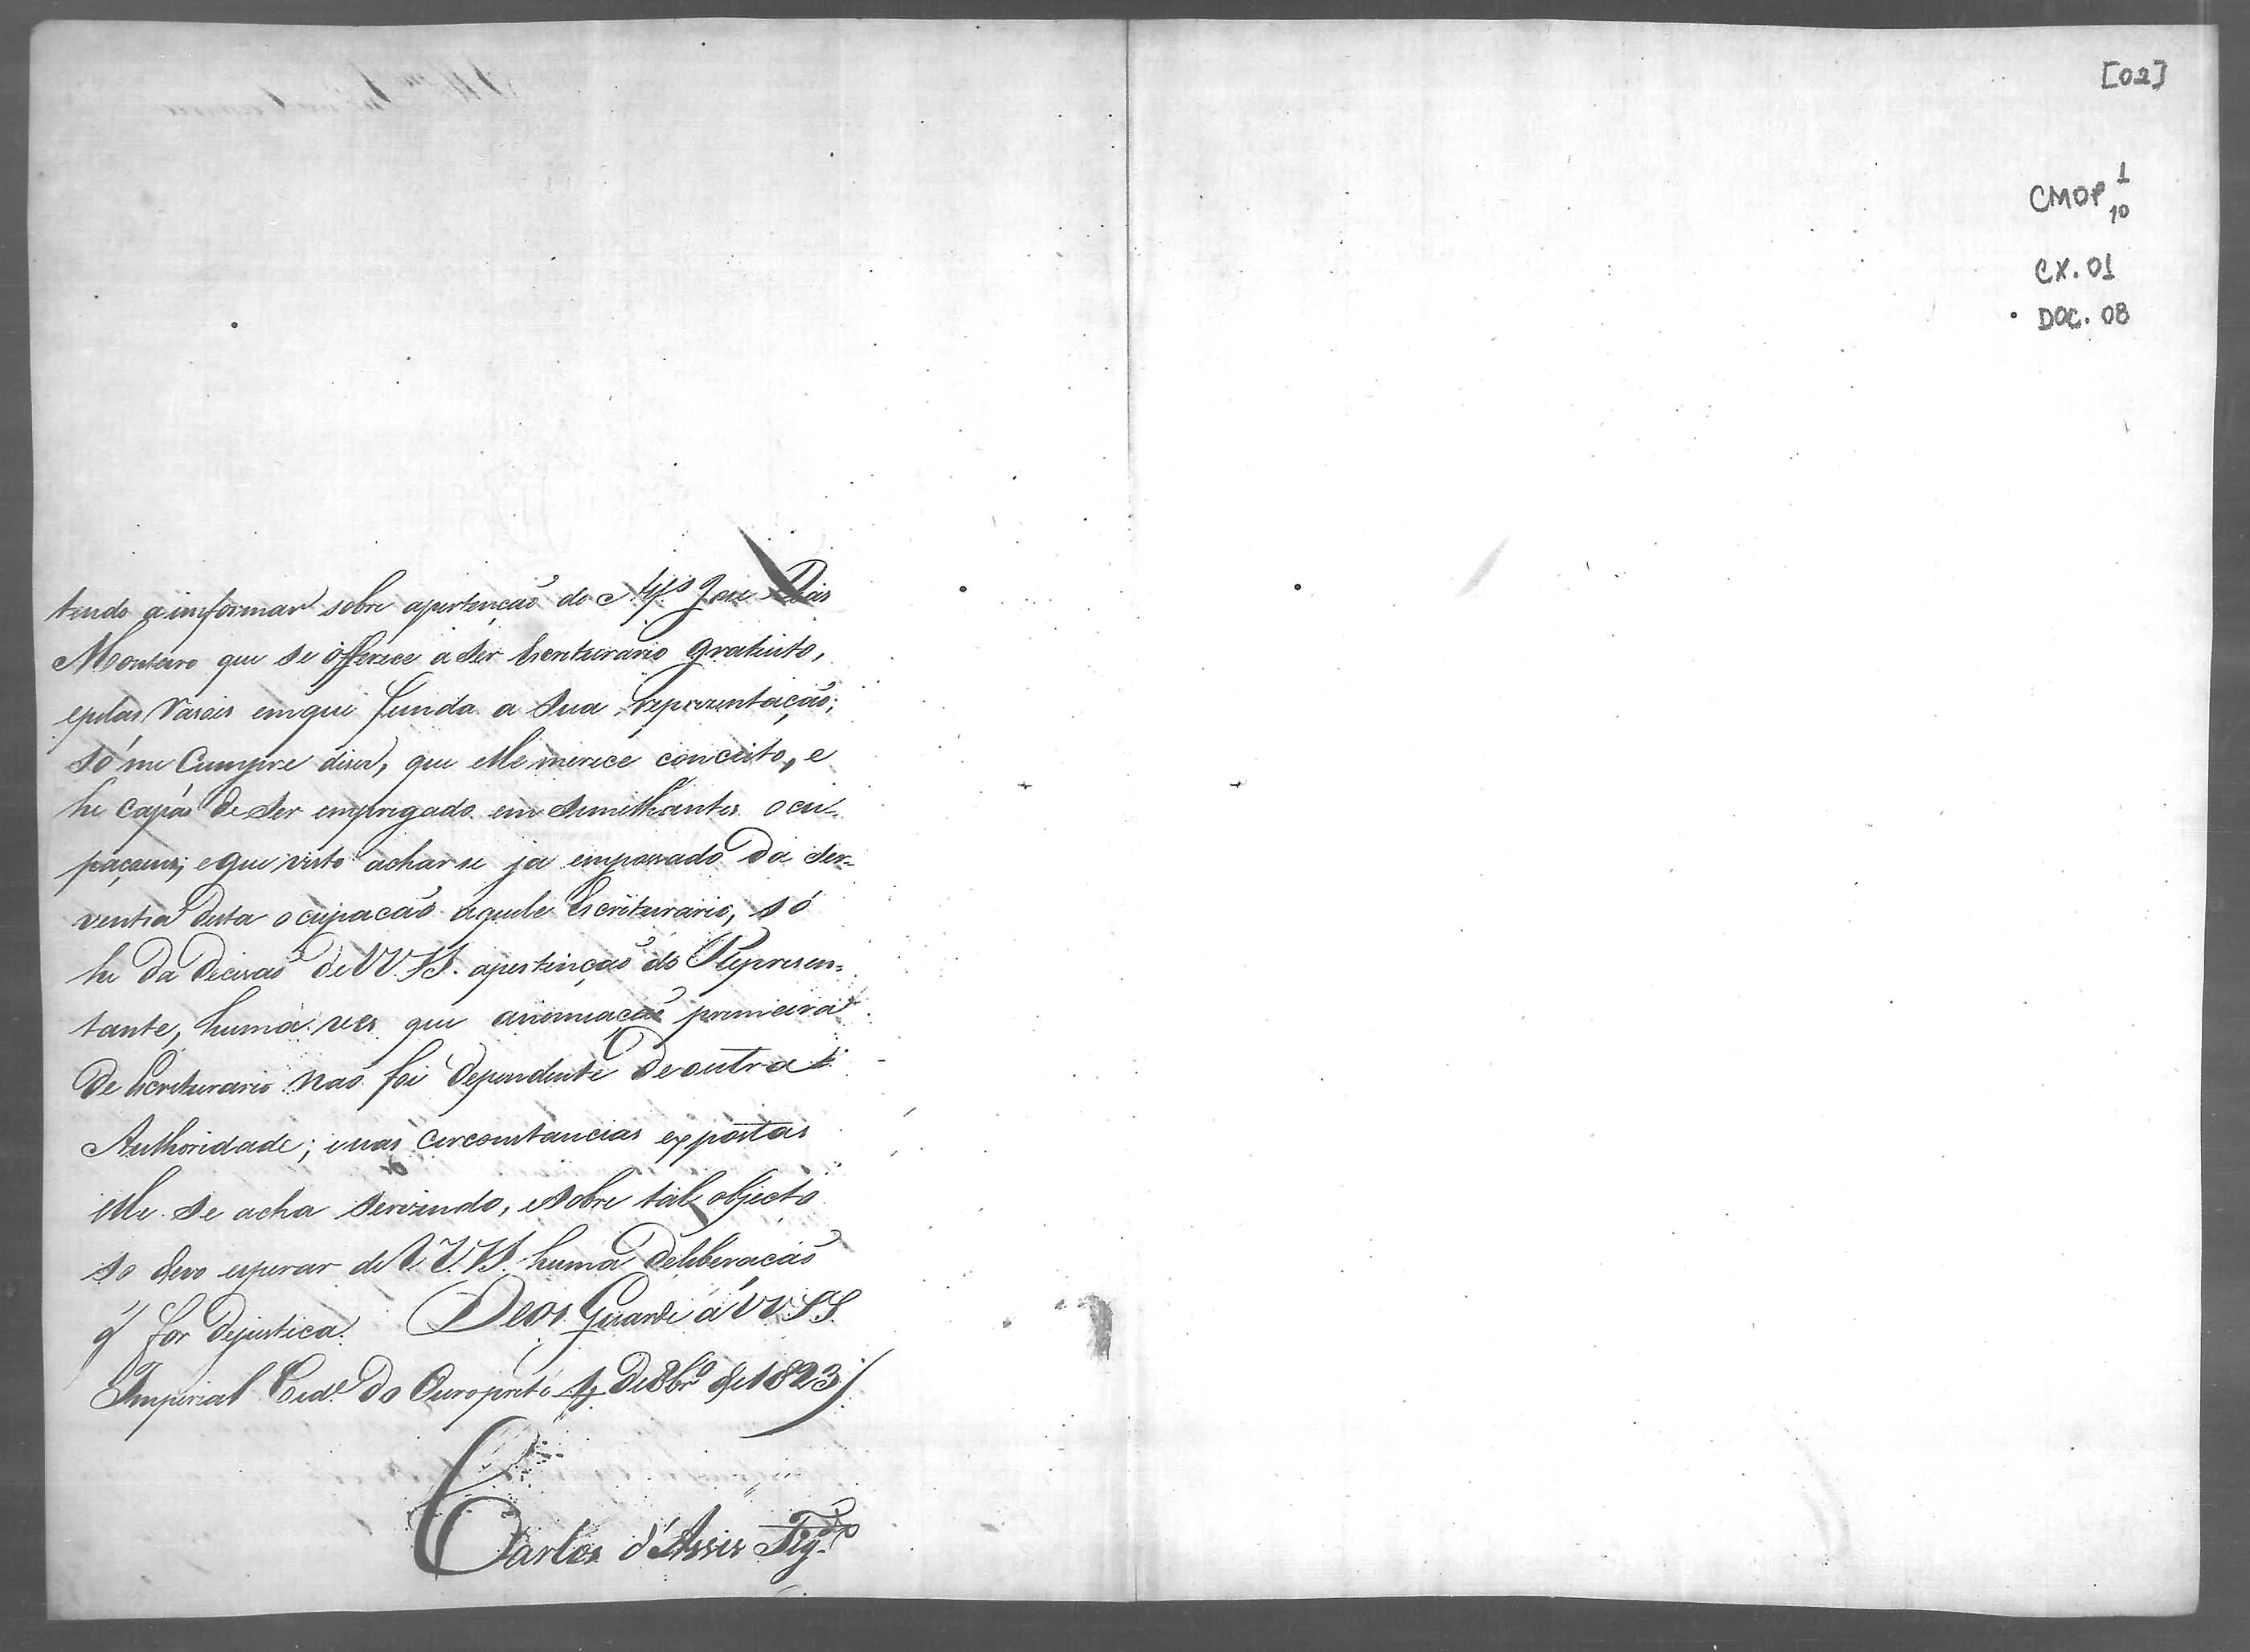 tendo a informar sobre apertenção do Alfs Joze Dias
Monteiro que se offerece a ser Escriturario gratuito,
epelas Rasois emque funda a sua representação;
só me Cumpre diser, que elle merece conceito, e
he Capás de ser empregado em similhantes ocu-
paçoens; eque visto acharse ja empossado da ser-
ventia desta ocupacaõ aquele Escriturario, só
he da decisaõ de VV. SS. apertinçaõ do Represen-
tante, huma ves que anomiaçaõ primeira
de Escriturario naõ foi dependente de outra
Authoridade; enas circonstancias expostas
elle se acha servindo, esobre tal objecto
so devo esperar de VV. SS. huma deliberacaõ
q' for dejustica. Deos Guarde á VV SS.
Imperial Cid.e do Ouropreto de 8br.o de 1823
Carlos d'Assis Fig.do
[02]
CMOP 1
10
CX. 01
DOC. 08